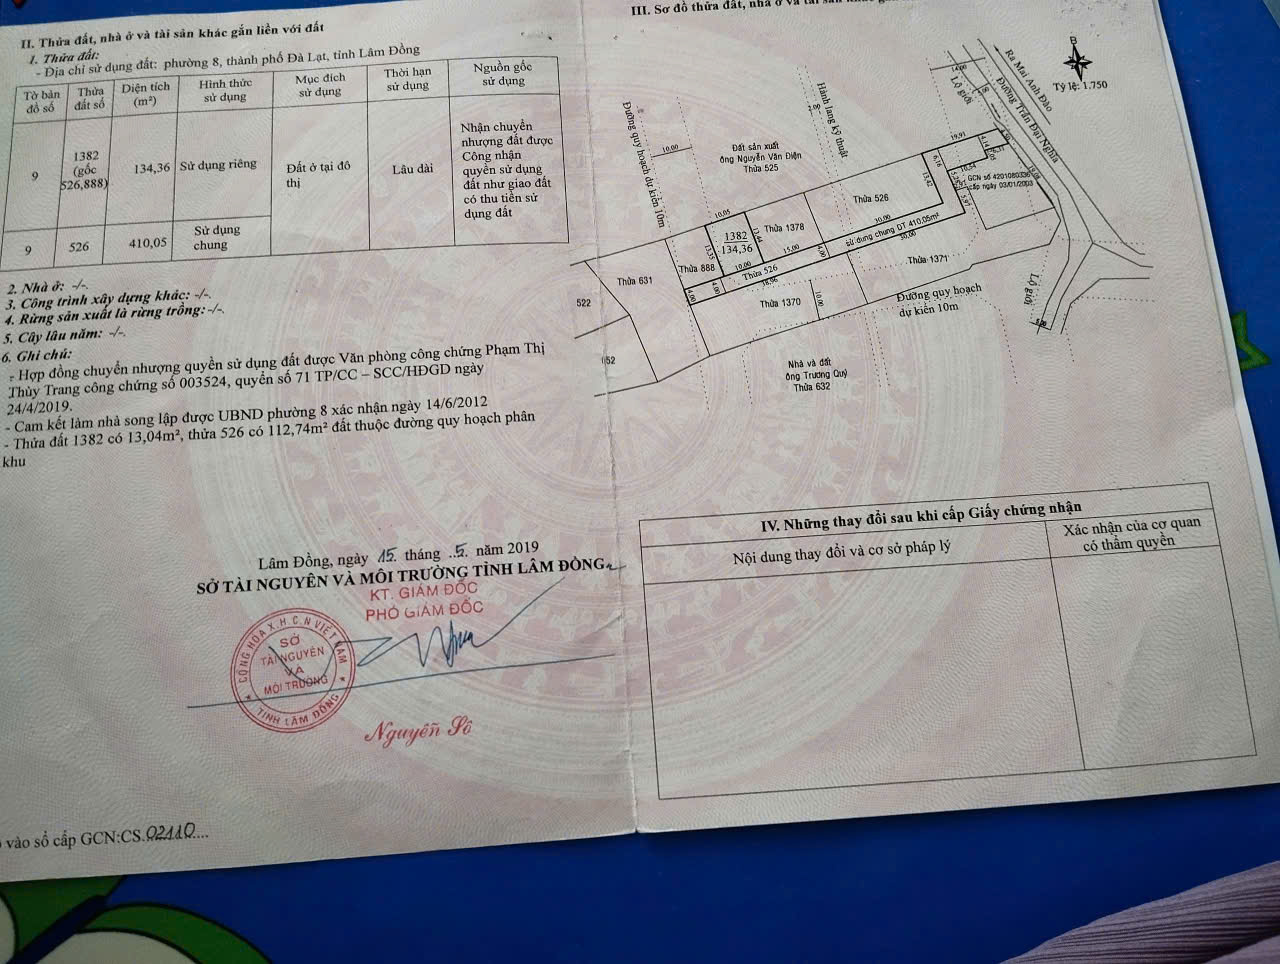 II. Thửa đất, nhà ở và tài sản khác gắn liền với đất
1. Thửa đất:
- Địa chỉ sử dụng đất: phường 8, thành phố Đà Lạt, tỉnh Lâm Đồng
Tờ bản đồ số
Thửa đất số
Diện tích (m²)
Hình thức sử dụng
Mục đích sử dụng
Thời hạn sử dụng
Nguồn gốc sử dụng
9
1382 (gốc 526,888)
134,36
Sử dụng riêng
Đất ở tại đô thị
Lâu dài
Nhận chuyển nhượng đất được Công nhận quyền sử dụng đất như giao đất có thu tiền sử dụng đất
9
526
410,05
Sử dụng chung
2. Nhà ở: -/-.
3. Công trình xây dựng khác: -/-.
4. Rừng sản xuất là rừng trồng: -/-.
5. Cây lâu năm: -/-.
6. Ghi chú:
- Hợp đồng chuyển nhượng quyền sử dụng đất được Văn phòng công chứng Phạm Thị
Thùy Trang công chứng số 003524, quyển số 71 TP/CC – SCC/HĐGD ngày
24/4/2019.
- Cam kết làm nhà song lập được UBND phường 8 xác nhận ngày 14/6/2012
- Thửa đất 1382 có 13,04m², thửa 526 có 112,74m² đất thuộc đường quy hoạch phân
khu
Lâm Đồng, ngày 15 tháng 5 năm 2019
SỞ TÀI NGUYÊN VÀ MÔI TRƯỜNG TỈNH LÂM ĐỒNG
KT. GIÁM ĐỐC
PHÓ GIÁM ĐỐC
CỘNG HÒA X.H.C.N VIỆT NAM
SỞ
TÀI NGUYÊN
VÀ
MÔI TRƯỜNG
TỈNH LÂM ĐỒNG
Nguyễn Sô
vào sổ cấp GCN:CS.02110....
III. Sơ đồ thửa đất, nhà ở và tài sản
B
Tỷ lệ: 1.750
Ra Mai Anh Đào
Đường Trần Đại Nghĩa
Lộ giới
14.00
18
Đường quy hoạch dự kiến 10m
10,00
Đất sản xuất
ông Nguyễn Văn Diện
Thửa 525
Hành lang kỹ thuật
2,00
19,91
GCN số 4201080336
cấp ngày 03/01/2003
Thửa 526
30,00
sử dụng chung DT 410,05m²
50,00
10,05
1382
134,36
13,35
13,44
10,00
Thửa 1378
15,00
4,00
Thửa 526
38,96
Thửa 888
4,00
4,00
Thửa 631
522
Thửa 1370
10,00
Thửa 1371
Đường quy hoạch
dự kiến 10m
Lộ giới
Nhà và đất
ông Trương Quý
Thửa 632
IV. Những thay đổi sau khi cấp Giấy chứng nhận
Nội dung thay đổi và cơ sở pháp lý
Xác nhận của cơ quan có thẩm quyền